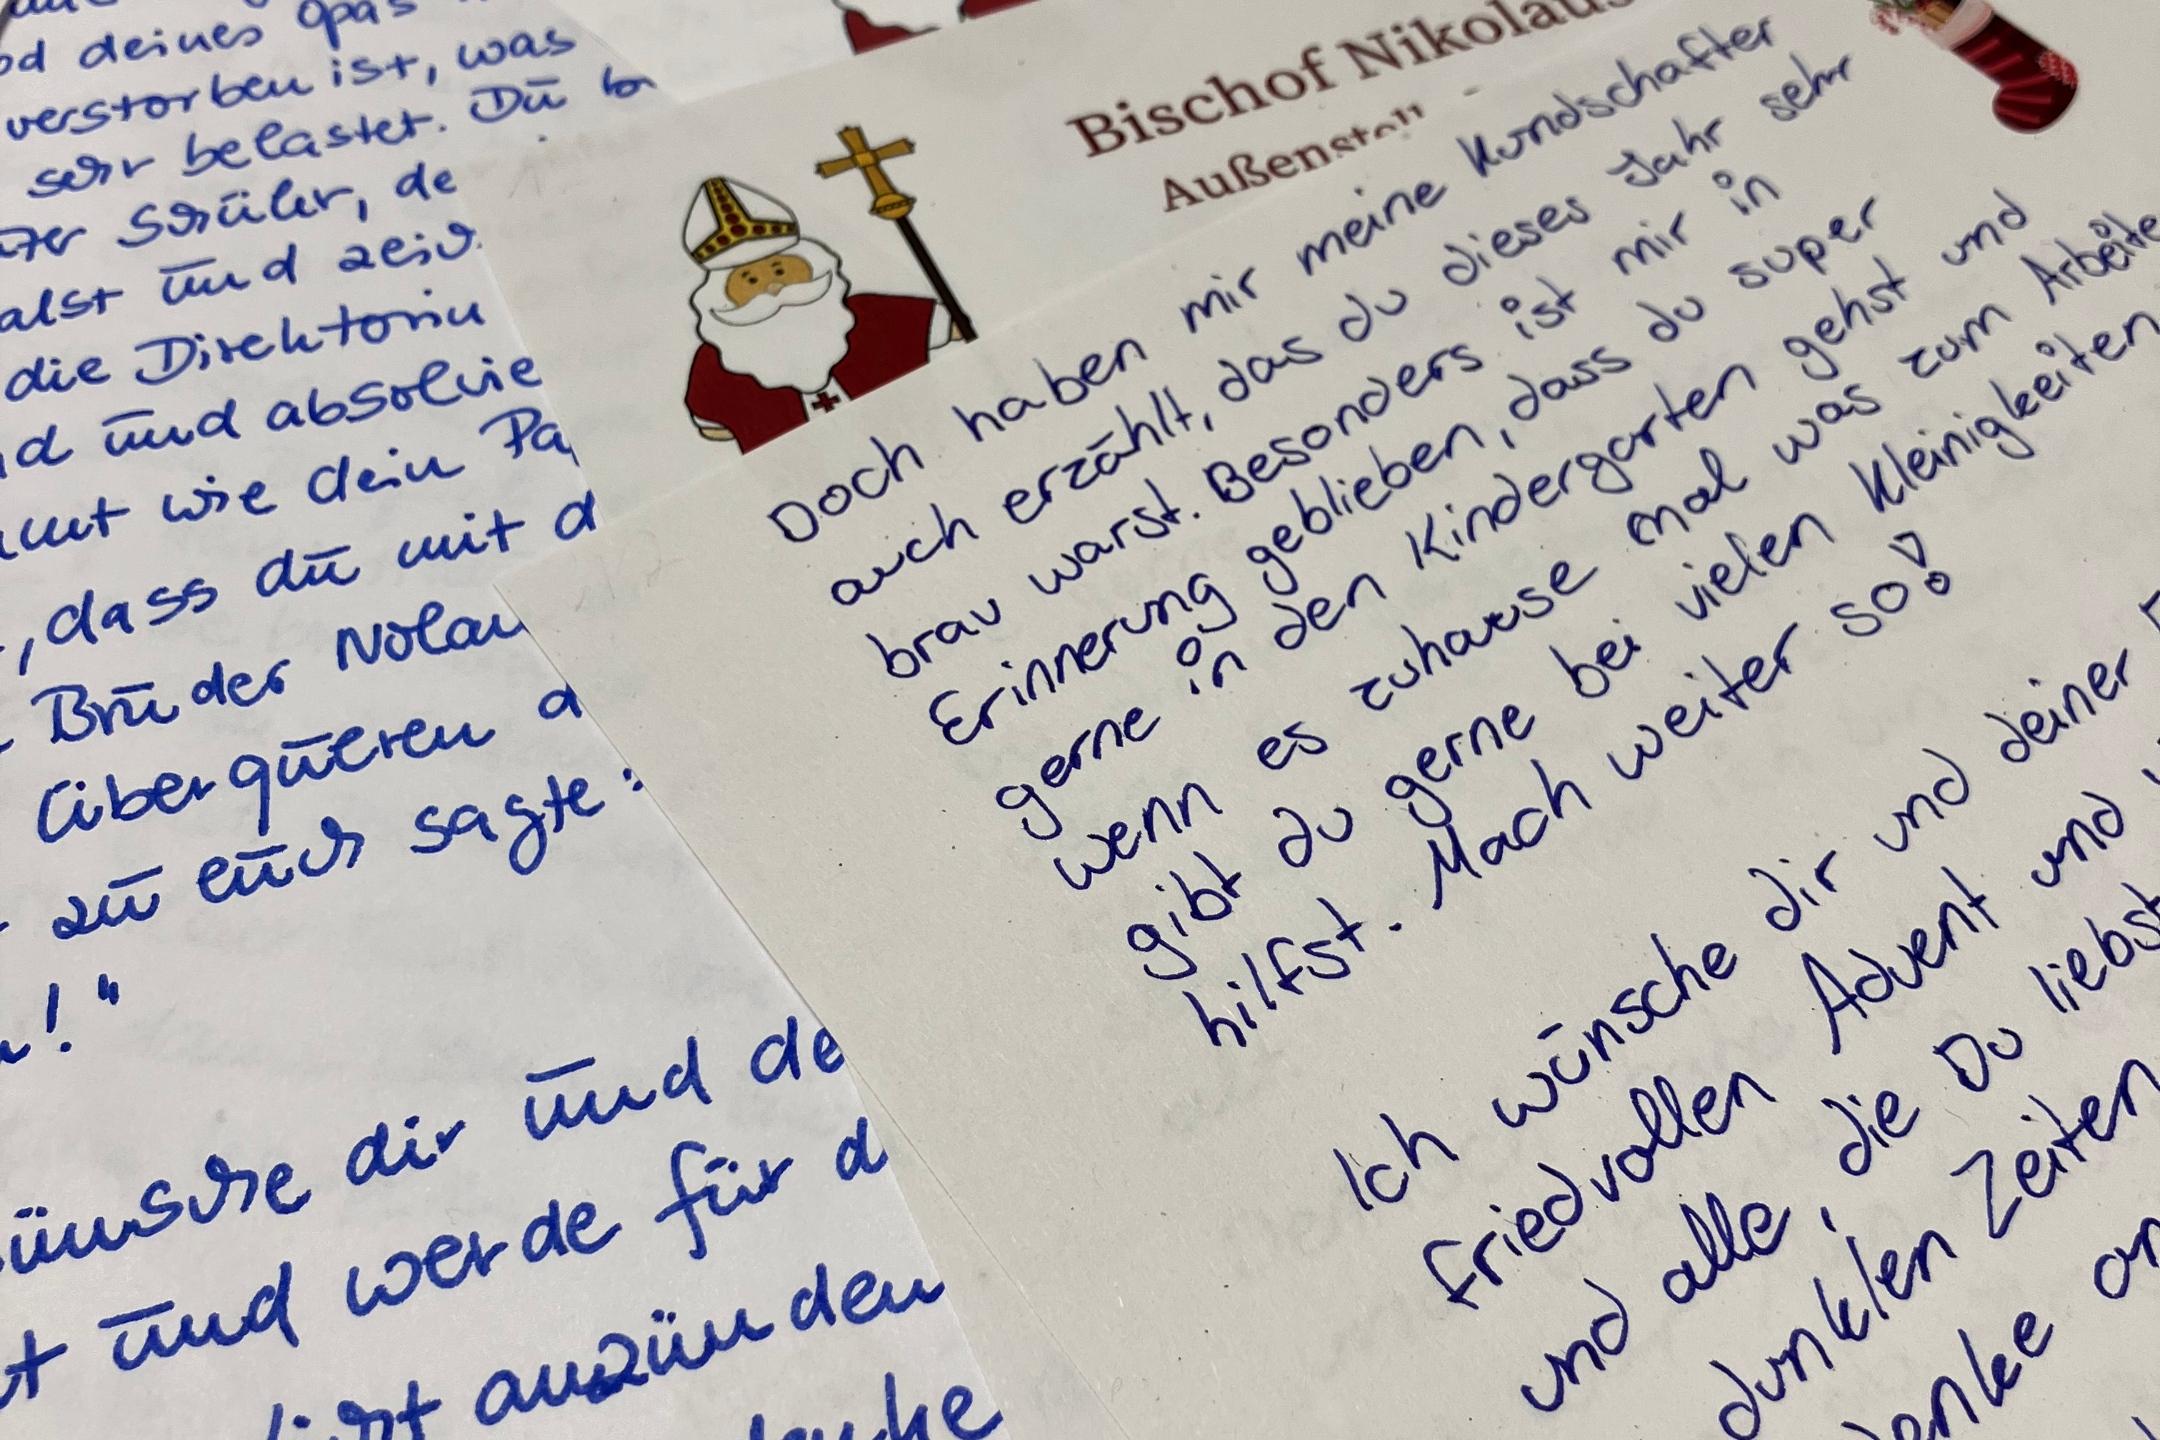 deines Opas
verstorben ist, was
sehr belastet. Du
Schüler, de
und zeic
die Direktorin
und absolvie
wie dein Pa
, dass du mit d
Bruder Nolan
überqueren d
zu euch sagte:
!"
dir und de
und werde für d
anzünden
Bischof Nikolaus
Außenstell
Doch haben mir meine Kundschafter
auch erzählt, das du dieses Jahr sehr
brav warst. Besonders ist mir in
Erinnerung geblieben, dass du super
gerne in den Kindergarten gehst und
wenn es zuhause mal was zum Arbeite
gibt du gerne bei vielen Kleinigkeiten
hilfst. Mach weiter so!
Ich wünsche dir und deiner F
friedvollen Advent und
und alle, die Du liebst
dunklen Zeiten
denke an